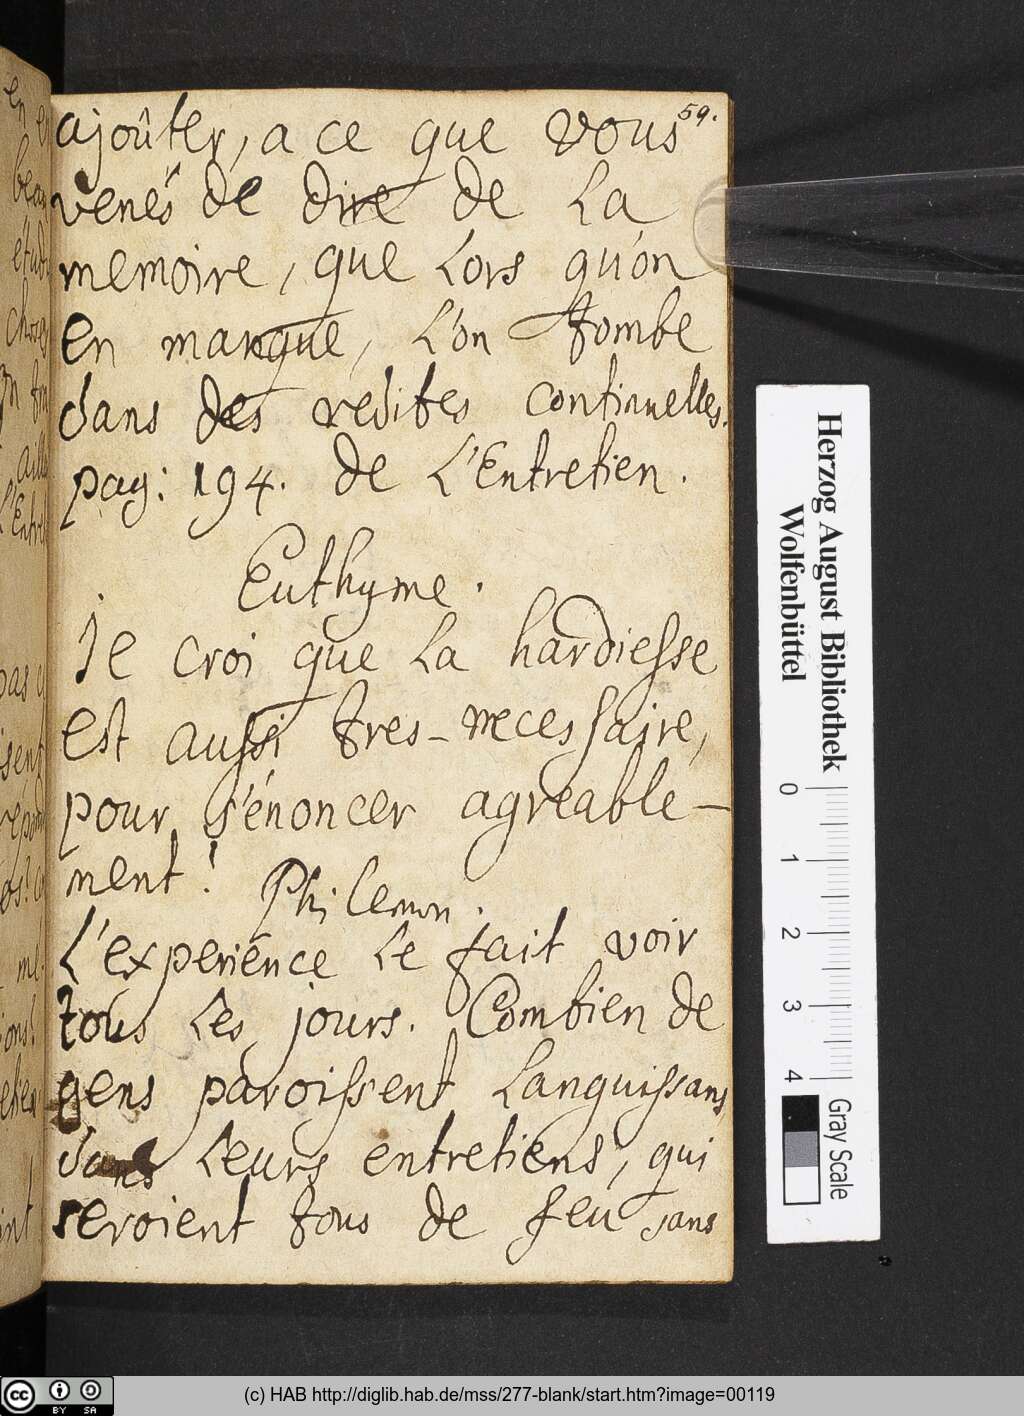 59.
ajoûter, a ce que vous
venés de dire de La
memoire, que Lors qu'on
en manque, L'on tombe
dans des redites continuelles.
pag: 194. de L'Entretien.
Euthyme.
Je croi que La hardiesse
est aussi tres-necessaire,
pour s'énoncer agreable-
ment!
Philemon.
L'experience Le fait voir
tous Les jours. Combien de
gens paroissent Languissans
dans Leurs entretiens, qui
seroient tous de feu sans
Herzog August Bibliothek
Wolfenbüttel
0 1 2 3 4
Gray Scale
cc BY SA
(c) HAB http://diglib.hab.de/mss/277-blank/start.htm?image=00119